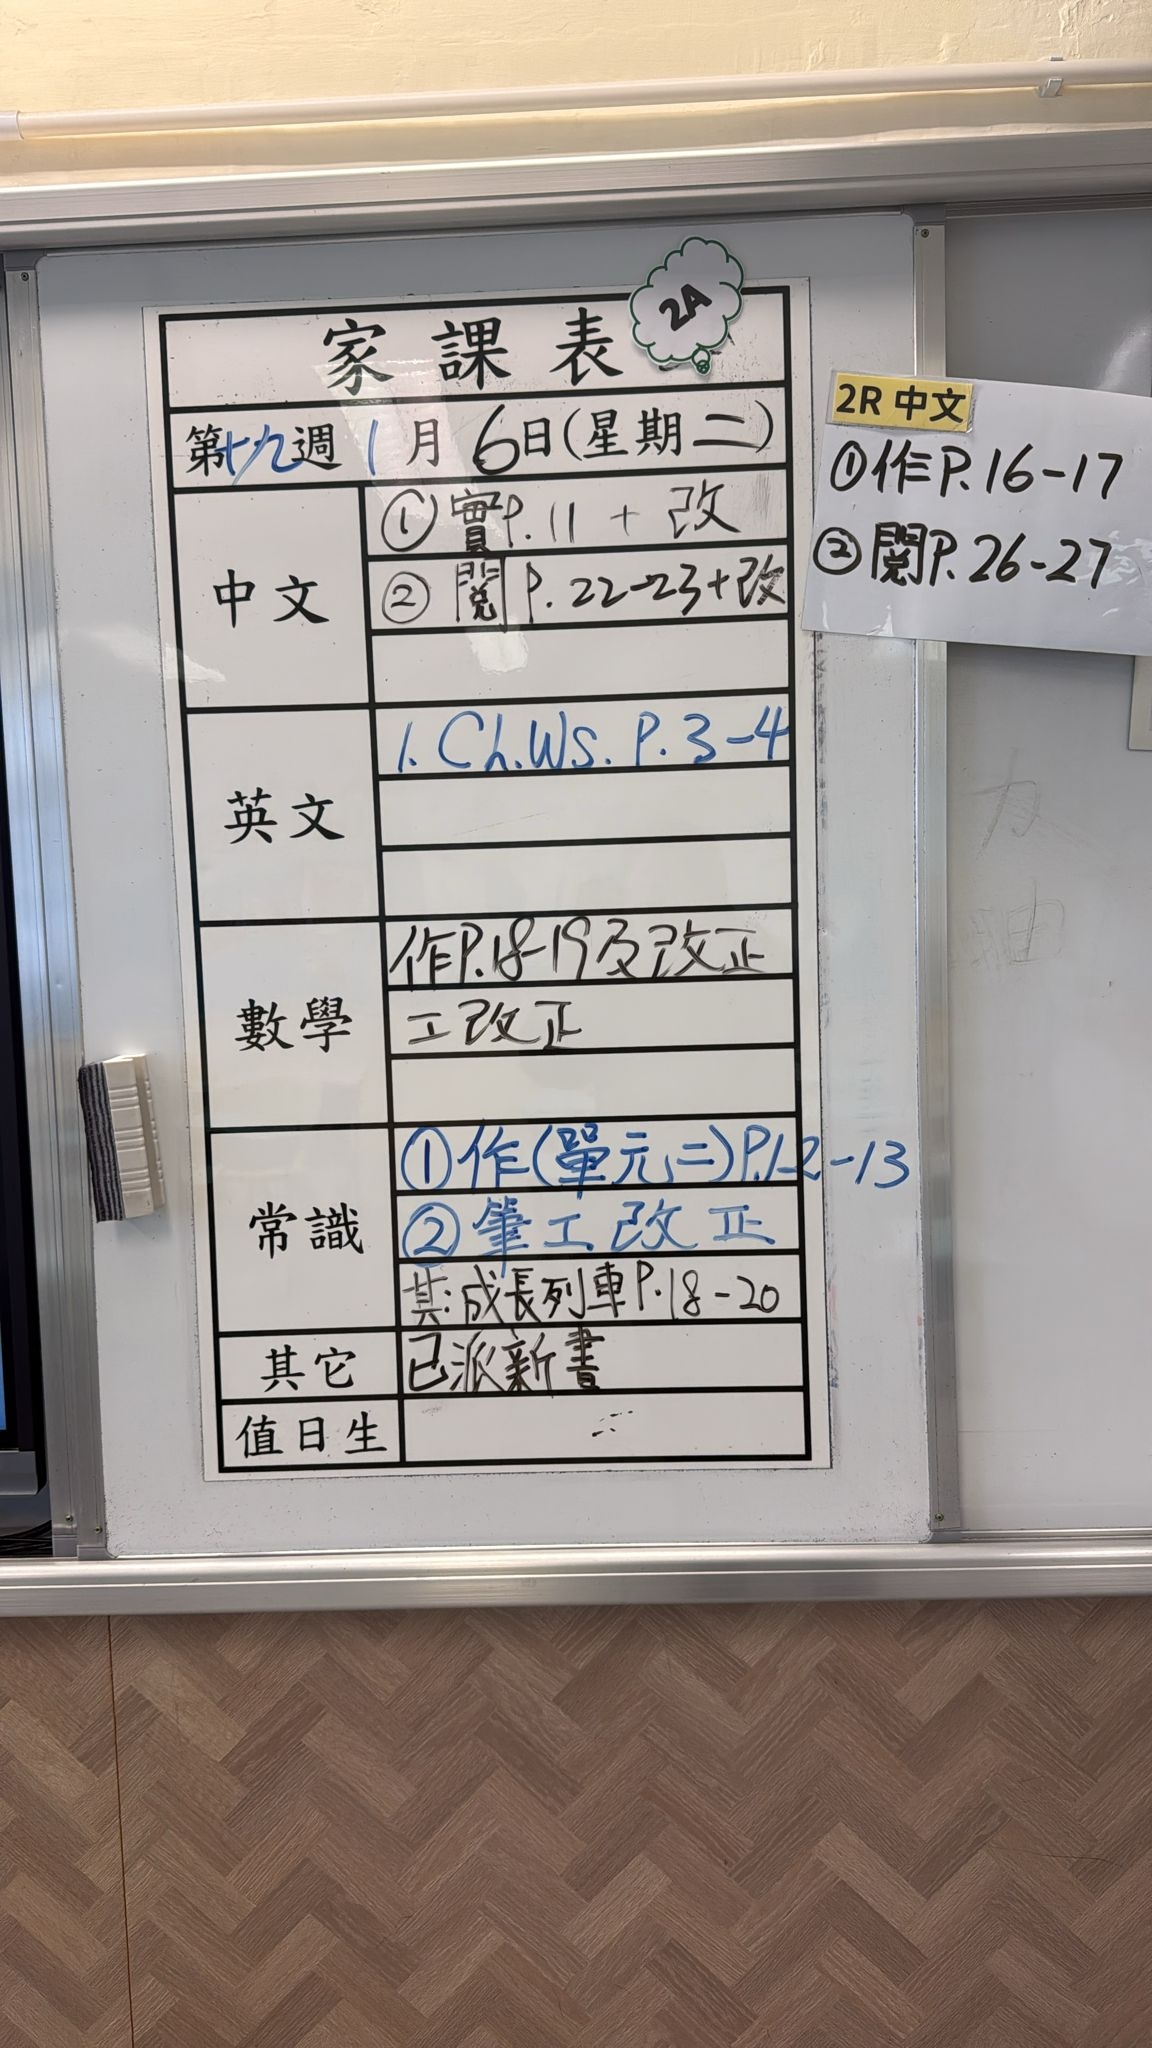 家課表
2A
第十九週 1月6日(星期二)
中文
① 實P.11 + 改
② 閱P.22-23+改
英文
1. Ch.Ws. P.3-4
數學
作P.18-19及改正
工改正
常識
①作(單元二)P.12-13
②筆工改正
其:成長列車P.18-20
其它
已派新書
值日生
2R 中文
①作P.16-17
②閱P.26-27